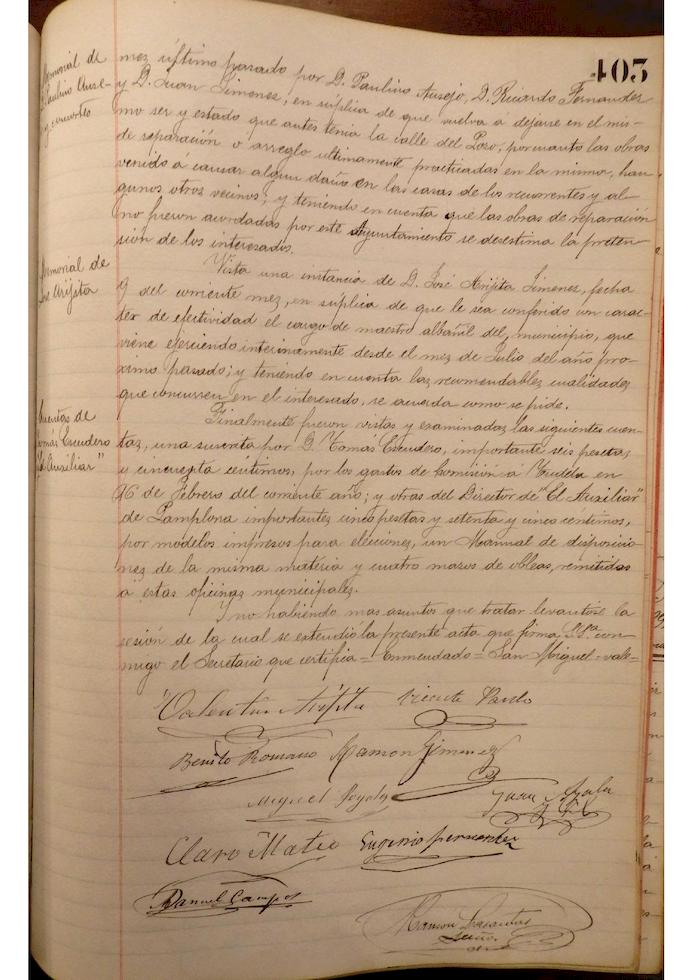 403
Memorial de
D. Paulino Ausejo
y consortes
mez último pasado por D. Paulino Ausejo, D. Ricardo Fernandez
y D. Juan Jimenez, en suplica de que vuelva á dejarse en el mis-
mo ser y estado que antes tenia la calle del Pozo; por cuanto las obras
de reparación o arreglo ultimamente practicadas en la misma, han
venido á causar algun daño en las casas de los recurrentes y al-
gunos otros vecinos; y teniendo en cuenta que las obras de reparación
no fueron acordadas por este Ayuntamiento se desestima la preten-
sión de los interesados.
Memorial de
José Arijita
Vista una instancia de D. José Arijita Jimenez, fecha
9 del corriente mez, en suplica de que le sea conferido con carac-
ter de efectividad el cargo de maestro albañil del municipio, que
viene ejerciendo interinamente desde el mes de Julio del año pro-
ximo pasado; y teniendo en cuenta las recomendables cualidades
que concurren en el interesado, se acuerda como se pide.
Cuentas de
Tomás Escudero
"El Auxiliar"
Finalmente fueron vistas y examinadas las siguientes cuen-
tas, una suscrita por D. Tomás Escudero, importante seis pesetas
y cincuenta centimos, por los gastos de Comisión á Tudela en
16 de Febrero del corriente año; y otras del Director de "El Auxiliar"
de Pamplona importantes cinco pesetas y setenta y cinco céntimos,
por modelos impresos para elecciones, un Manual de disposicio-
nes de la misma materia y cuatro mazos de obleas, remitidas
á estas oficinas municipales.
Y no habiendo mas asuntos que tratar levantose la
sesión de la cual se extendió la presente acta que firma S.Sa. con-
migo el Secretario que certifica = Enmendado = San Miguel = vale =
Valentin Arijita Vicente Pardo
Benito Romano Ramon Jimenez
Miguel Juan Ayala
y Gil
Claro Mateo Eugenio Fernandez
Manuel Campos
Ramon